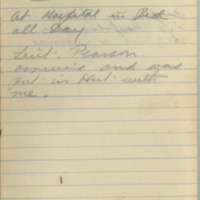 At Hospital in Bed
all day
Lieut. Pearson
arrived and was
put in Hut with
me.